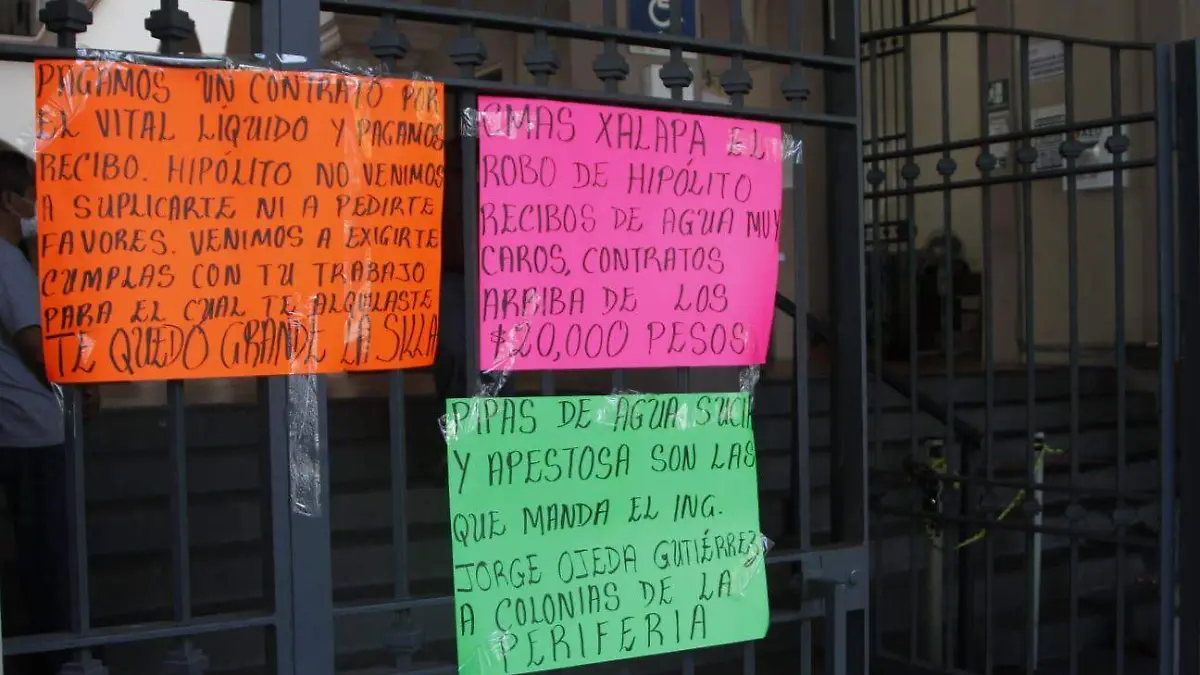 PAGAMOS UN CONTRATO POR
EL VITAL LÍQUIDO Y PAGAMOS
RECIBO. HIPÓLITO NO VENIMOS
A SUPLICARTE NI A PEDIRTE
FAVORES. VENIMOS A EXIGIRTE
CUMPLAS CON TU TRABAJO
PARA EL CUAL TE ALQUILASTE
TE QUEDO GRANDE LA SILLA
CMAS XALAPA EL
ROBO DE HIPÓLITO
RECIBOS DE AGUA MUY
CAROS, CONTRATOS
ARRIBA DE LOS
$20,000 PESOS
PIPAS DE AGUA SUCIA
Y APESTOSA SON LAS
QUE MANDA EL ING.
JORGE OJEDA GUTIÉRREZ
A COLONIAS DE LA
PERIFERIA